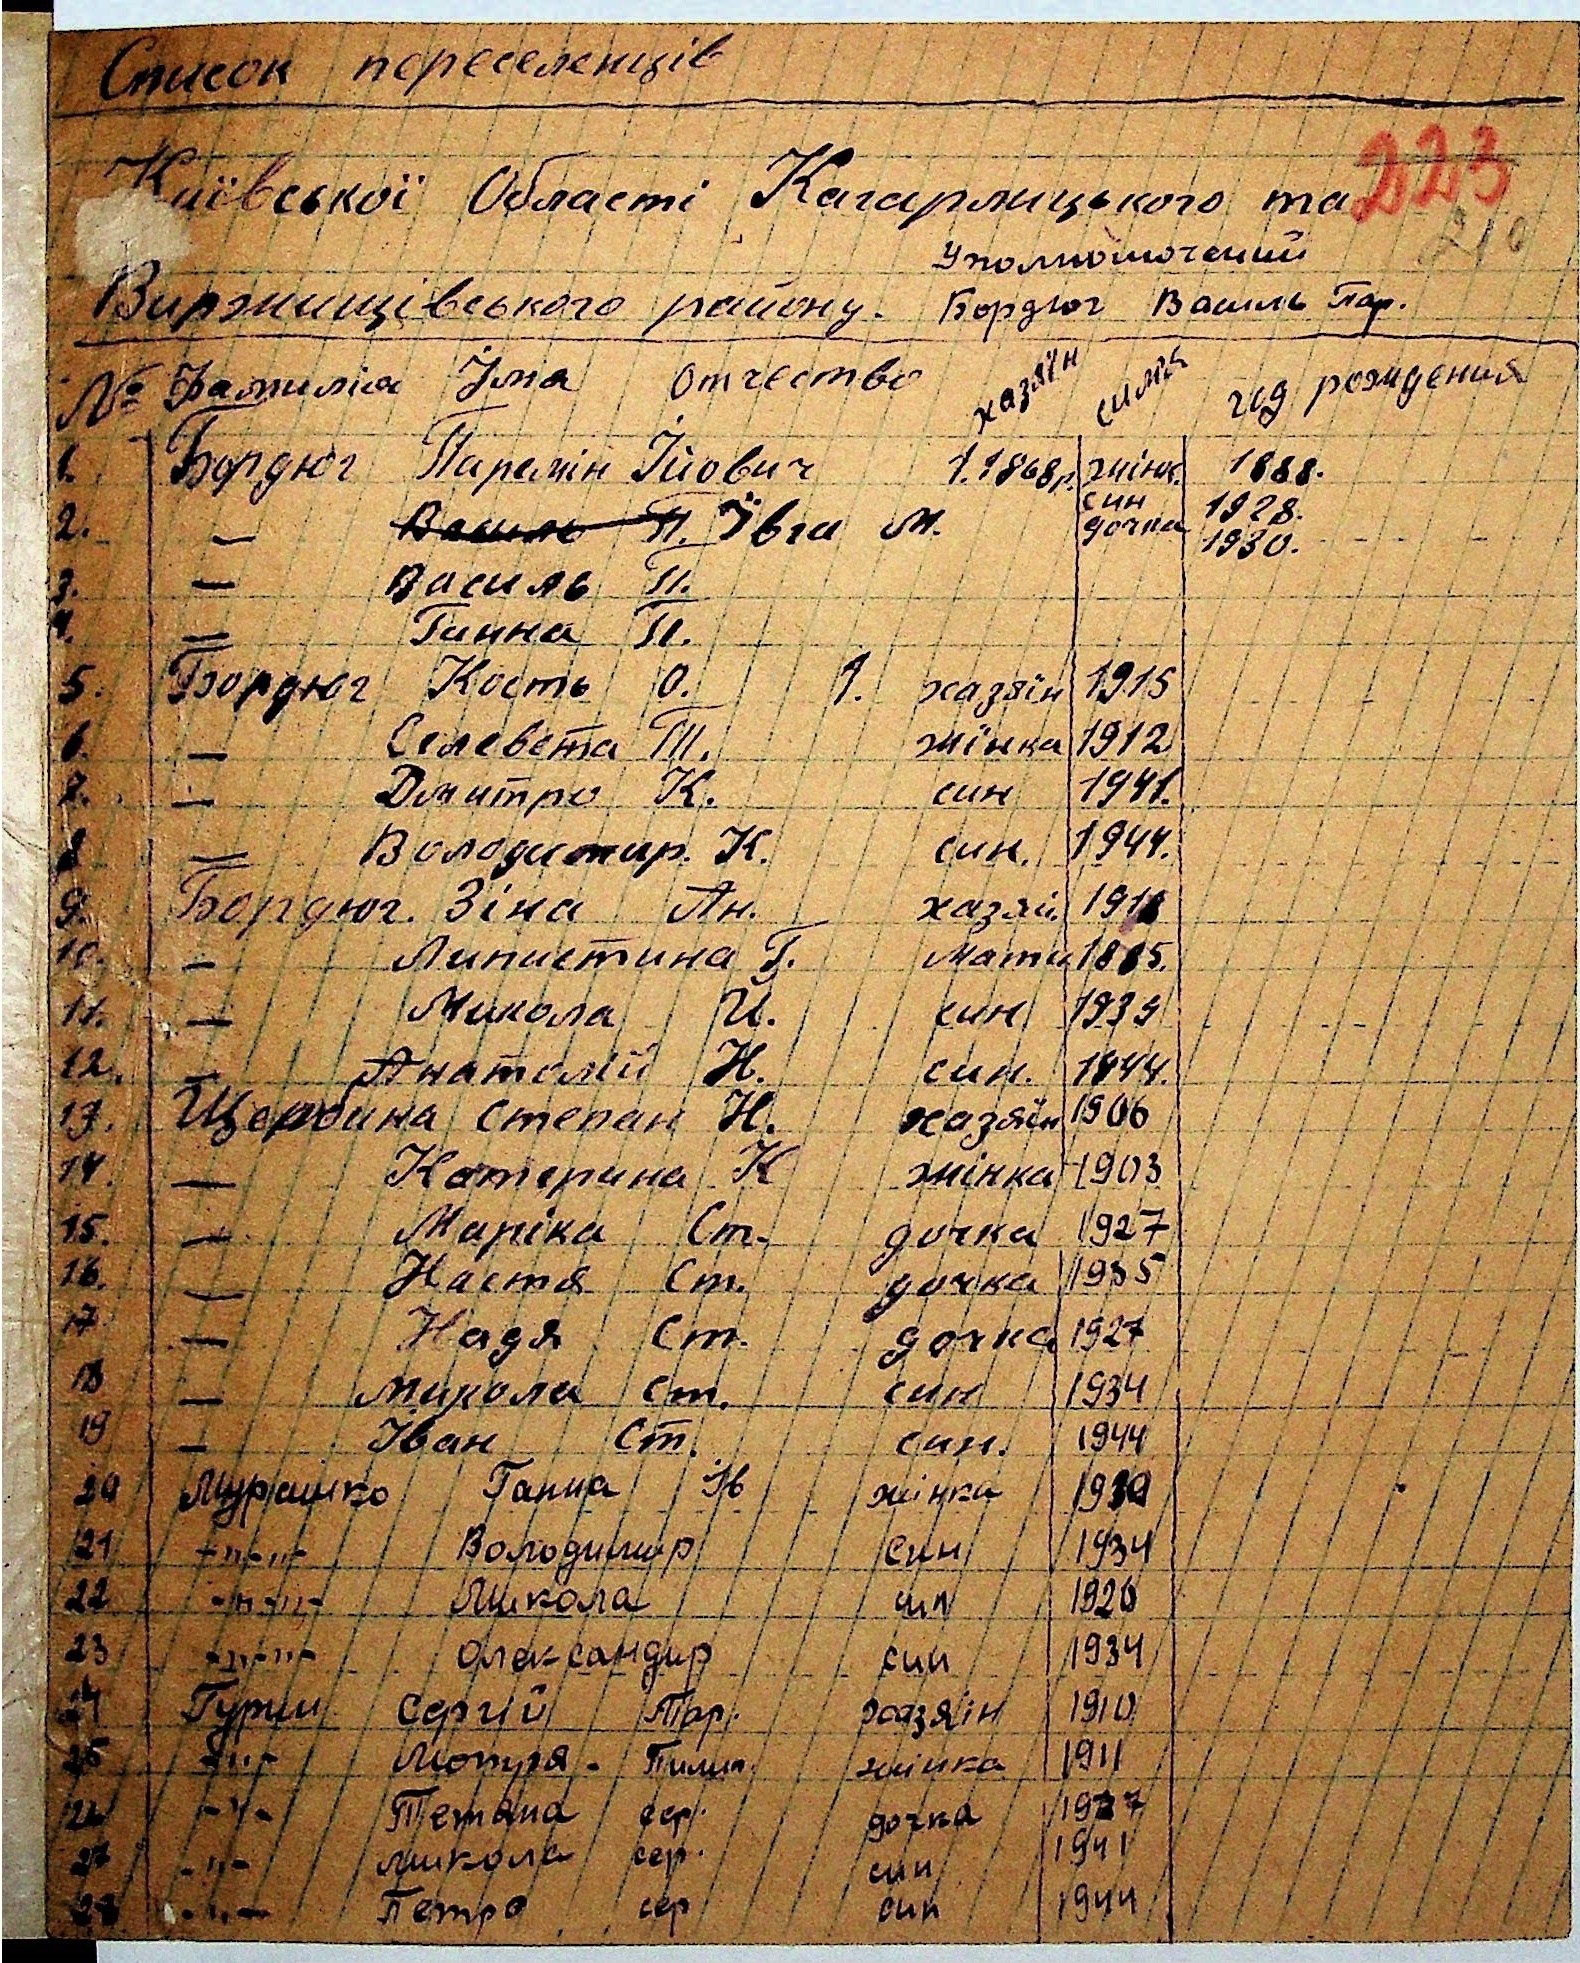 Список переселенців
Київської Області Кагарлицького та 223
210
Уполномочений
Виржищівського району. Бордюг Василь Пар.
№ Фамилиа Їмя отчество хазяїн симя год рождения
1. Бордюг Паремін Їйович 1. 1868р. жінк. 1888.
син 1928.
2. — Василь П. Ївга М. дочка 1930.
3. — Василь П.
4. — Ганна П.
5. Бордюг Кость О. 1. хазяїн 1915
6. — Селевета Т. жінка 1912
7. — Дмитро К. син 1941.
8 — Володимир. К. син. 1944.
9. Бордюг. Зіна Ан. хазяй. 1918
10. — Липистина Г. мати 1885.
11. — Микола И. син 1935
12. — Анатолій Н. син. 1944.
13. Щербина Степан Н. хазяїн 1906
14. — Катерина К жінка 1903
15. — Маріка Ст. дочка 1927
16. — Настя Ст. дочка 1935
17 — Надя Ст. дочка 1927
18 — Микола Ст. син 1934
19 — Іван Ст. син. 1944
20 Мурашко Ганна жінка
21 -"-"- Володимир син 1934
22 -"-"- Микола син 1926
23 -"-"- Олександир син 1934
24 Гурин Сергій Пар. хазяїн 1910
25 -"- Мотря. Пилип. жінка 1911
26 -"- Тетяна сер. дочка 1937
27 -"- Микола сер. син 1941
28 -"- Петро сер син 1944